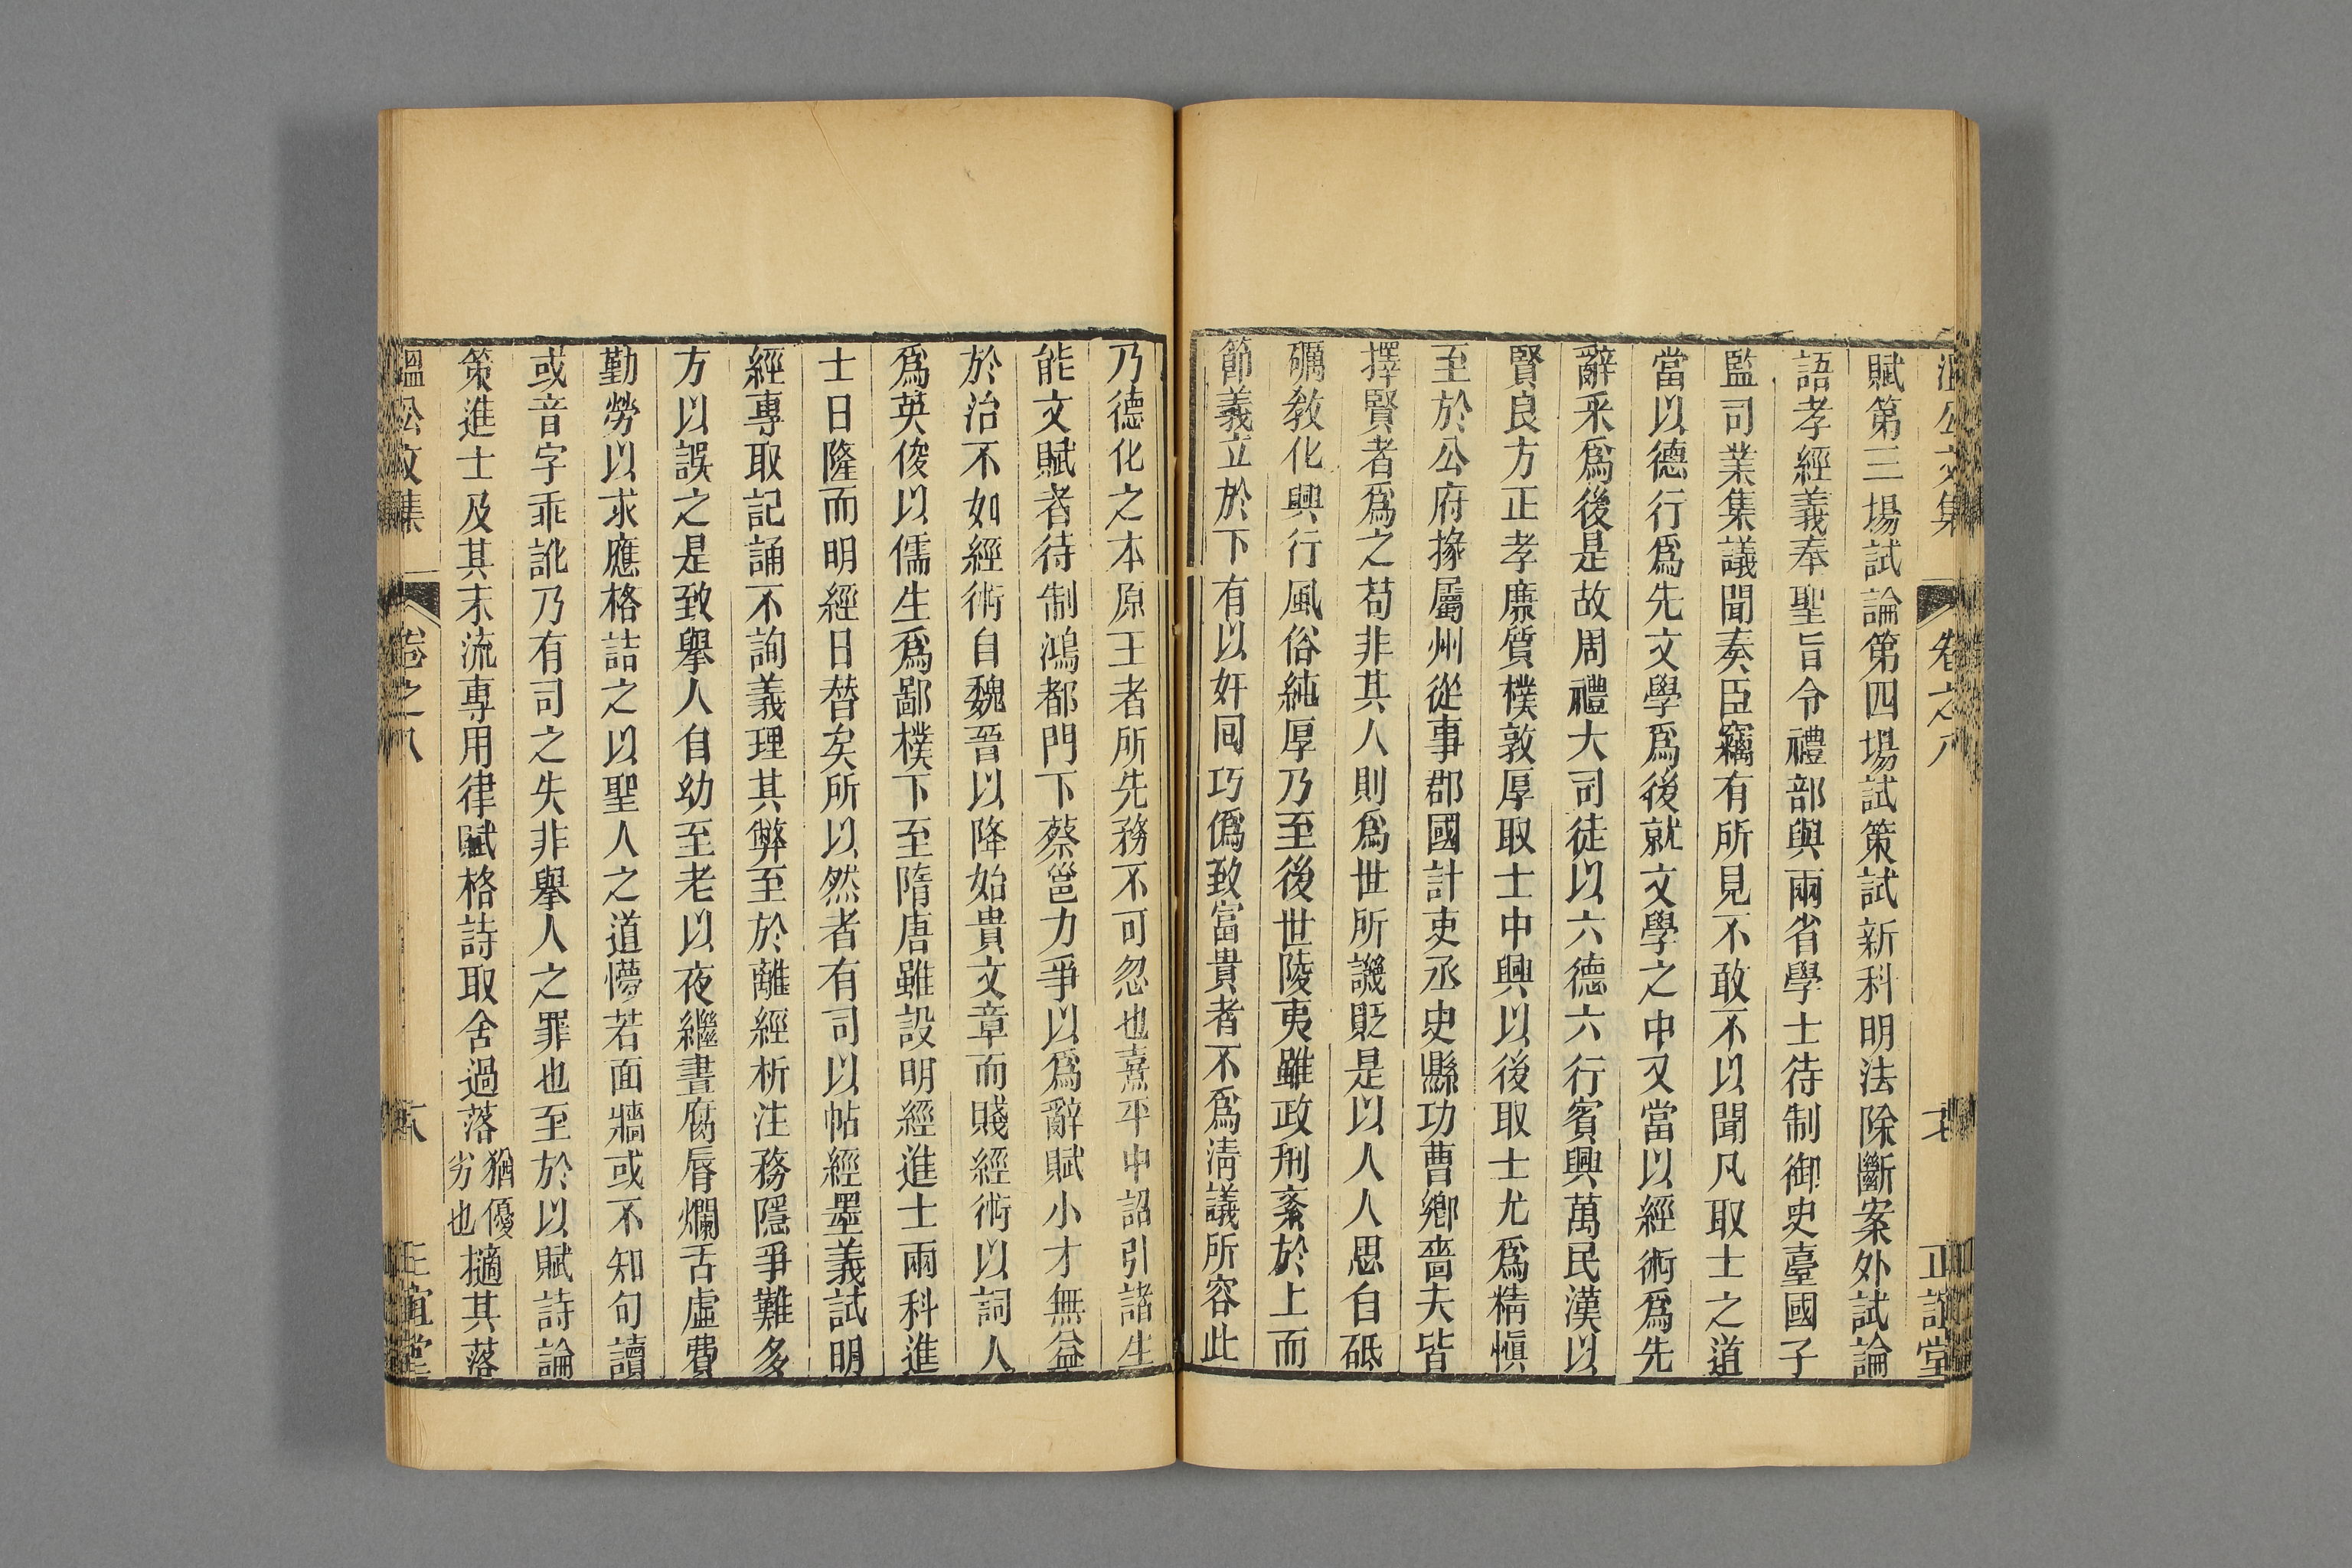 溫公文集 卷之八 正誼堂
賦第三場試論第四場試策試新科明法除斷案外試論
語孝經義奉聖旨令禮部與兩省學士待制御史臺國子
監司業集議聞奏臣竊有所見不敢不以聞凡取士之道
當以德行爲先文學爲後就文學之中又當以經術爲先
辭采爲後是故周禮大司徒以六德六行賓興萬民漢以
賢良方正孝廉質樸敦厚取士中興以後取士尤爲精愼
至於公府掾屬州從事郡國計吏丞史縣功曹鄉嗇夫皆
擇賢者爲之苟非其人則爲世所譏貶是以人人思自砥
礪敎化興行風俗純厚乃至後世陵夷雖政刑紊於上而
節義立於下有以奸回巧僞致富貴者不爲淸議所容此
乃德化之本原王者所先務不可忽也熹平中詔引諸生
能文賦者待制鴻都門下蔡邕力爭以爲辭賦小才無益
於治不如經術自魏晉以降始貴文章而賤經術以詞人
爲英俊以儒生爲鄙樸下至隋唐雖設明經進士兩科進
士日隆而明經日替矣所以然者有司以帖經墨義試明
經專取記誦不詢義理其弊至於離經析注務隱爭難多
方以誤之是致舉人自幼至老以夜繼晝腐脣爛舌虛費
勤勞以求應格詰之以聖人之道懵若面牆或不知句讀
或音字乖訛乃有司之失非舉人之罪也至於以賦詩論
策進士及其末流專用律賦格詩取舍過落猶優劣也擿其落
溫公文集 卷之八 正誼堂